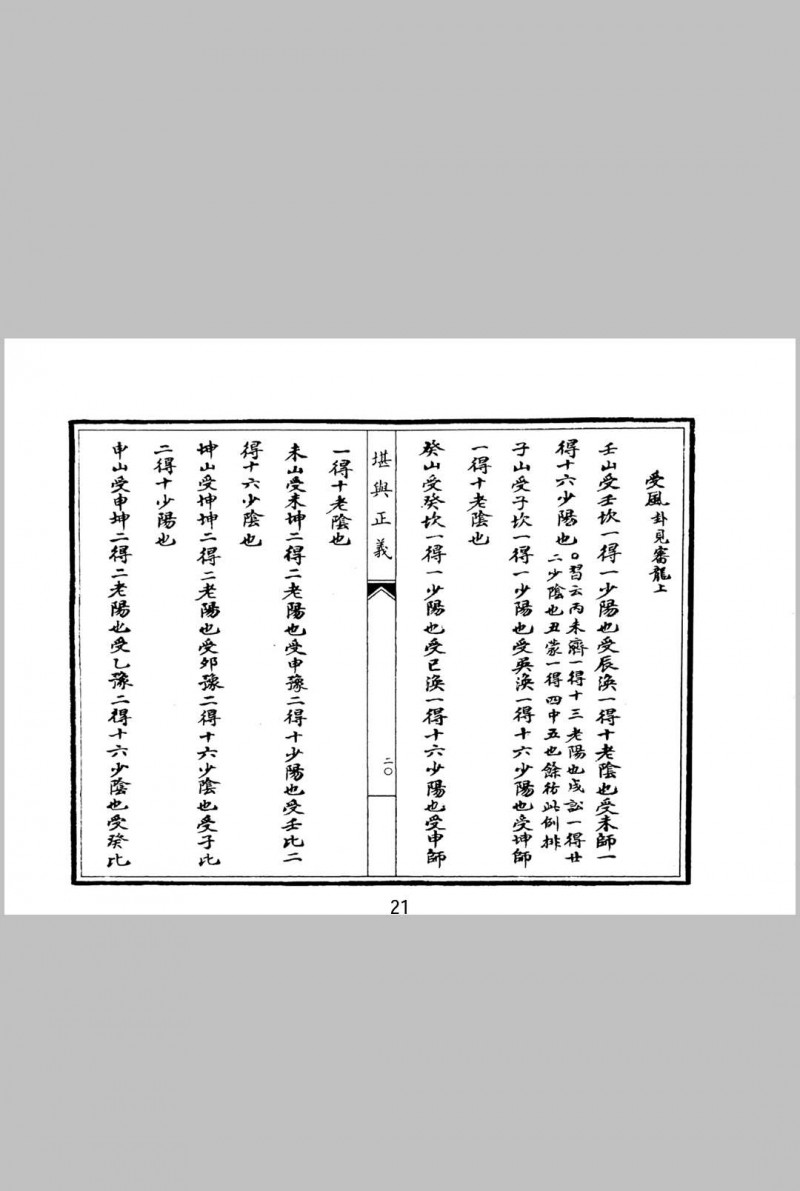 受風卦見審龍上
壬山受壬坎一得一少陽也受辰渙一得十老陰也受未師一
得十六少陽也○習云丙未濟一得十三老陽也戌訟一得廿
二少陰也丑蒙一得四申五也餘仿此例排
子山受子坎一得一少陽也受巽渙一得十六少陽也受坤師
一得十老陰也
癸山受癸坎一得一少陽也受巳渙一得十六少陽也受申師
堪輿正義
二〇
一得十老陰也
未山受未坤二得二老陽也受申豫二得十少陽也受壬比二
得十六少陰也
坤山受坤坤二得二老陽也受夘豫二得十六少陰也受子比
二得十少陽也
申山受申坤二得二老陽也受乙豫二得十六少陰也受癸比
21